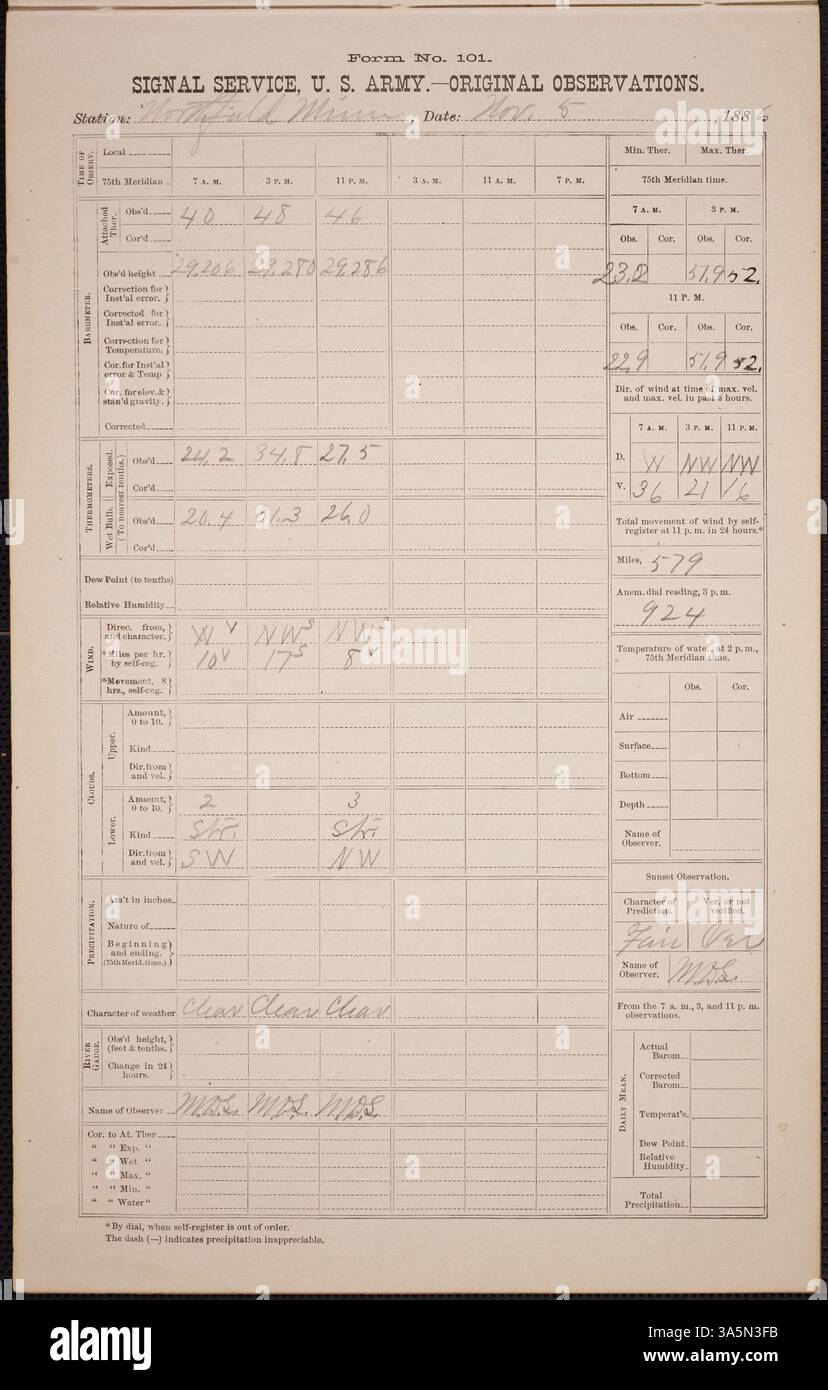 Form No. 101.
SIGNAL SERVICE, U. S. ARMY.—ORIGINAL OBSERVATIONS.
Station: Northfield Minn, Date: Nov. 5, 188
TIME OF OBSERV.
Local
75th Meridian 7 A. M. 3 P. M. 11 P. M. 3 A. M. 11 A. M. 7 P. M.
BAROMETER.
Attached Ther.
Obs'd 40 48 46
Cor'd
Obs'd height 29.206 29.280 29.286
Correction for Inst'al error.
Corrected for Inst'al error.
Correction for Temperature.
Cor. for Inst'al error & Temp
Cor. for elev. & stan'd gravity.
Corrected
THERMOMETERS.
(To nearest tenths.)
Exposed.
Obs'd 24.2 34.8 27.5
Cor'd
Wet Bulb.
Obs'd 20.4 31.3 26.0
Cor'd
Dew Point (to tenths)
Relative Humidity
WIND.
Direc. from, and character. W V NW S NW
*Miles per hr. by self-reg. 10 V 17 S 8 V
*Movement, 8 hrs., self-reg.
CLOUDS.
Upper.
Amount, 0 to 10.
Kind
Dir. from and vel.
Lower.
Amount, 0 to 10. 2 3
Kind Str. Str.
Dir. from and vel. SW NW
PRECIPITATION.
Am't in inches
Nature of
Beginning and ending. (75th Merid. time.)
Character of weather Clear Clear Clear
RIVER GAUGE.
Obs'd height, (feet & tenths.
Change in 24 hours.
Name of Observer
Cor. to At. Ther
" " Exp. "
" " Wet "
" " Max. "
" " Min. "
" " Water "
*By dial, when self-register is out of order.
The dash (—) indicates precipitation inappreciable.
Min. Ther. Max. Ther.
75th Meridian time.
7 A. M. 3 P. M.
Obs. Cor. Obs. Cor.
23.0 51.9 52.
11 P. M.
Obs. Cor. Obs. Cor.
22.9 51.9 52.
Dir. of wind at time of max. vel. and max. vel. in past 8 hours.
7 A. M. 3 P. M. 11 P. M.
D. W NW NW
V. 36 21 16
Total movement of wind by self-register at 11 p. m. in 24 hours.*
Miles, 579
Anem. dial reading, 3 p. m.
924
Temperature of water, at 2 p. m., 75th Meridian time.
Obs. Cor.
Air
Surface
Bottom
Depth
Name of Observer.
Sunset Observation.
Character of Prediction. Ver. or not verified.
Fair Ver
Name of Observer.
From the 7 a. m., 3, and 11 p. m. observations.
DAILY MEAN.
Actual Barom
Corrected Barom
Temperat'e.
Dew Point
Relative Humidity
Total Precipitation
alamy
Image ID: 3A5N3FB
www.alamy.com